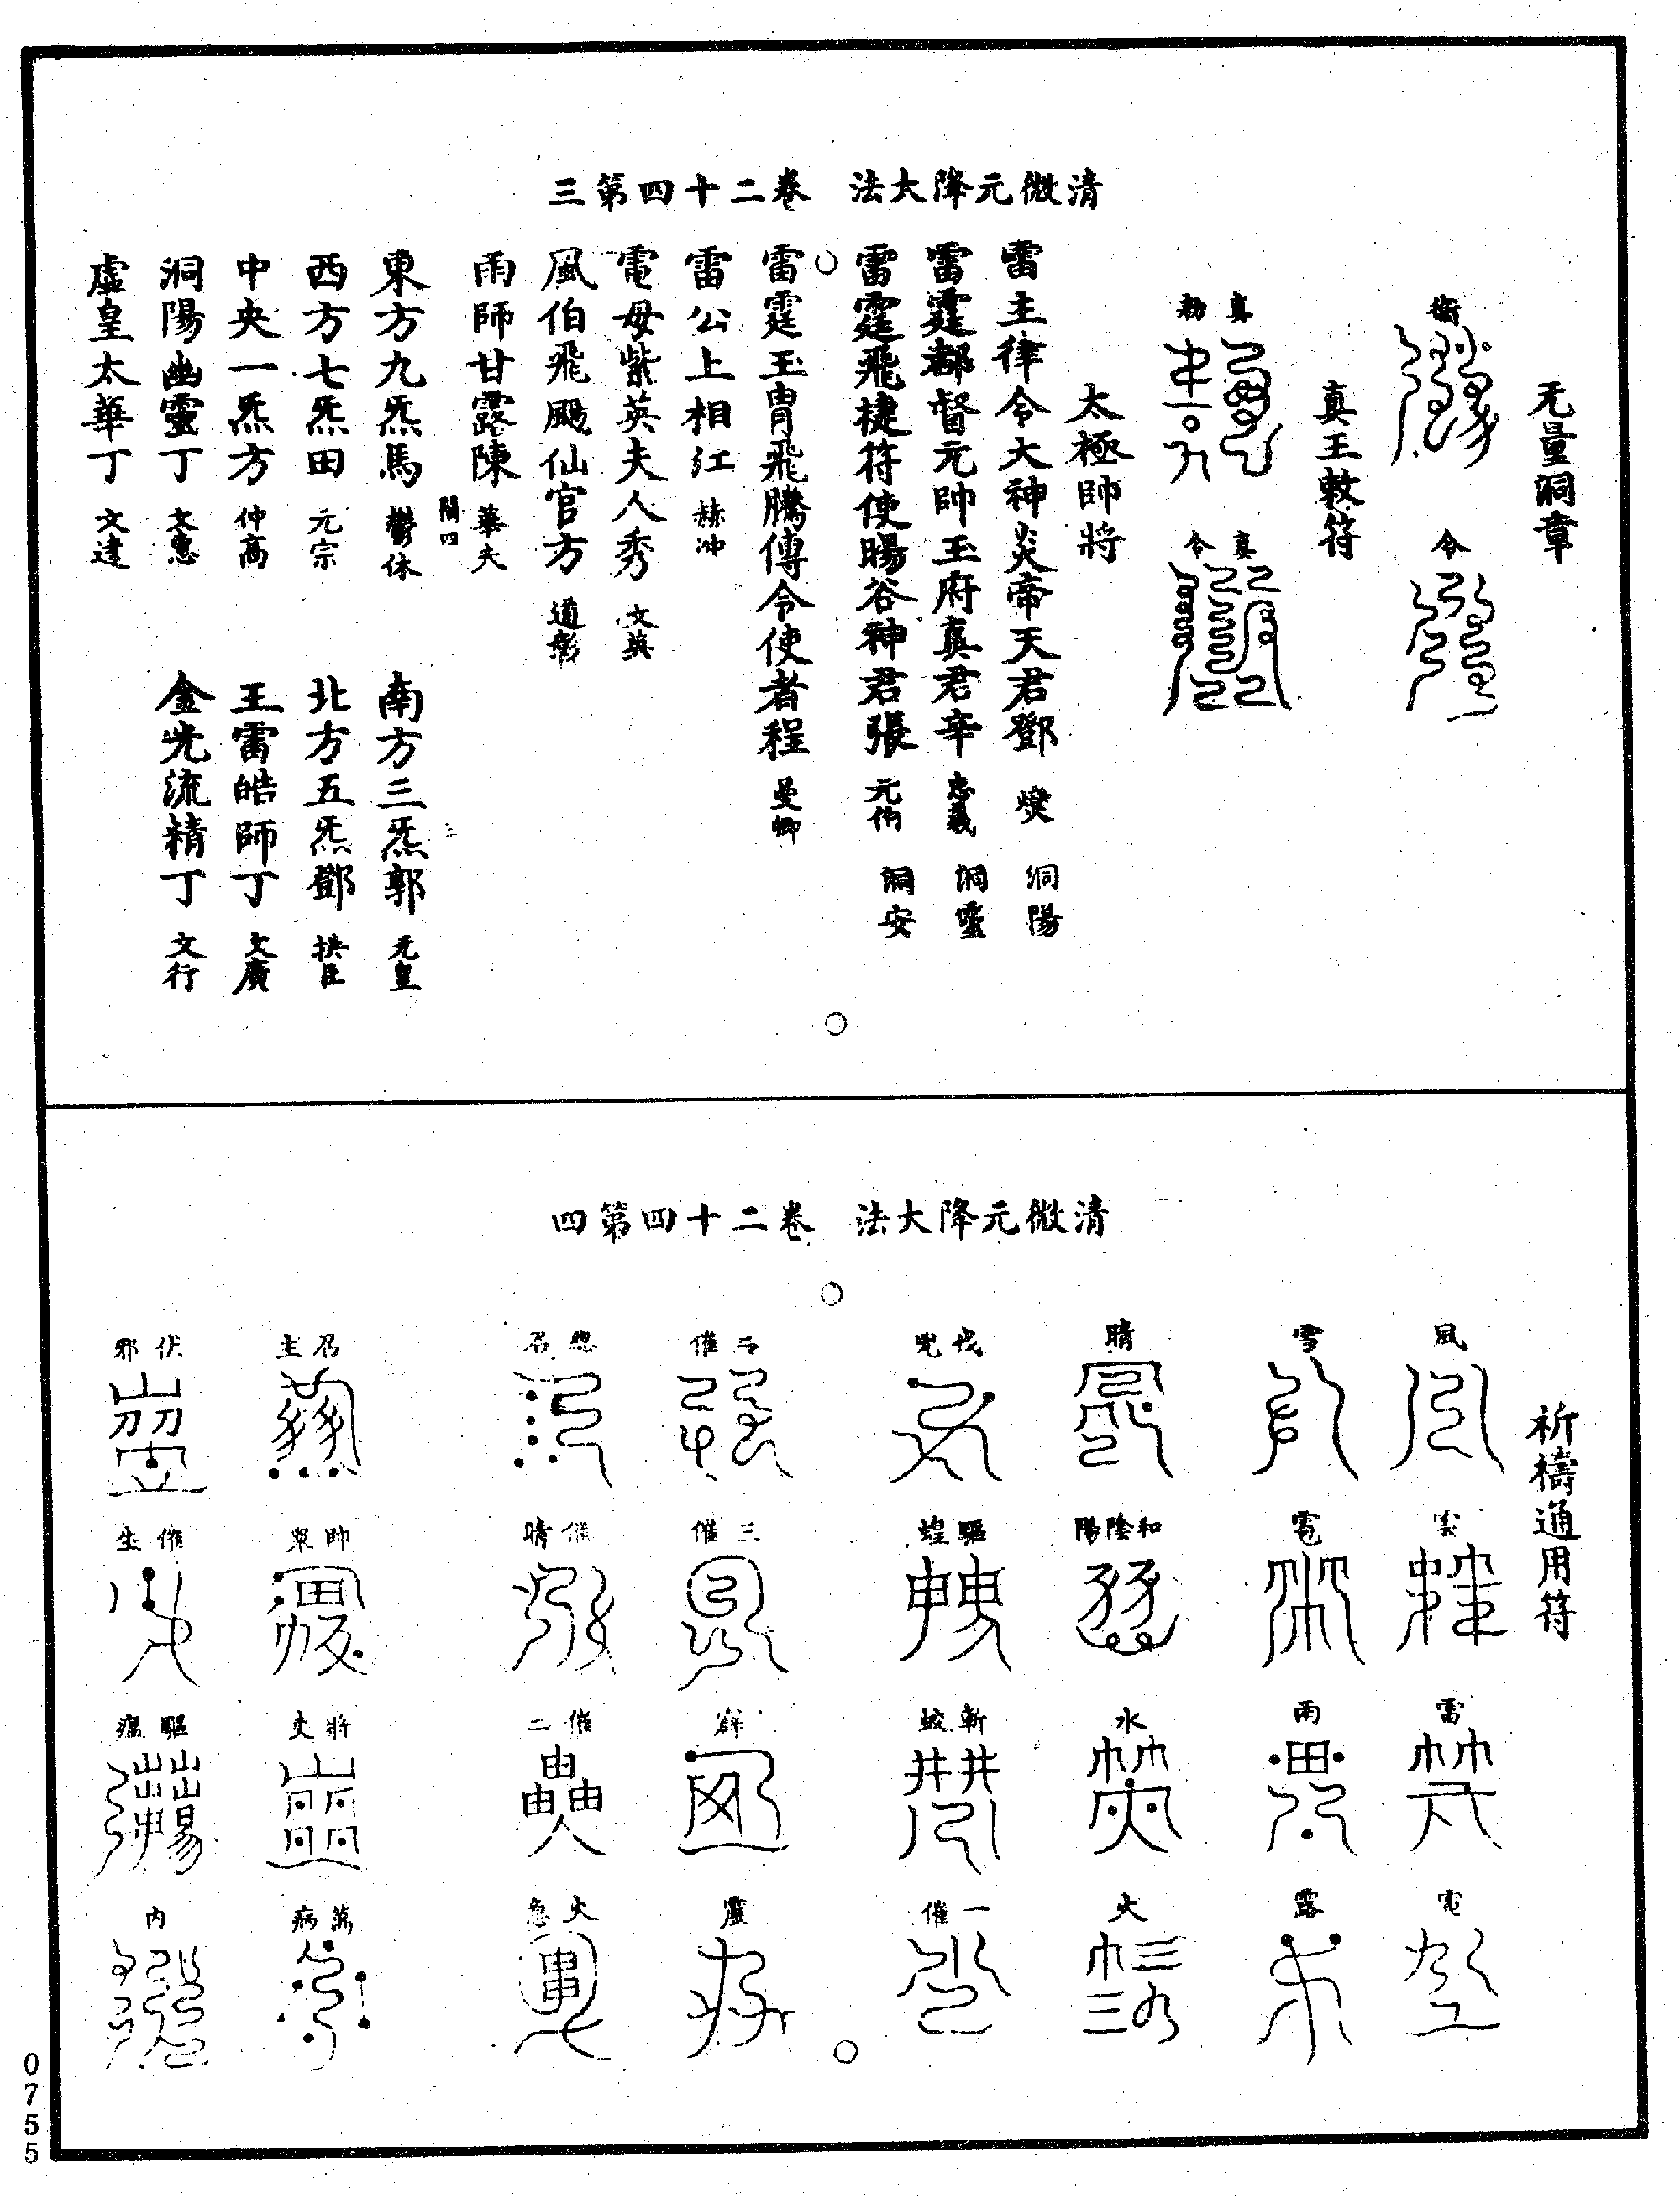 清微元降大法　卷二十四第三
无量洞章
衛
令
真王敕符
真勑
真令
太極帥將
雷主律令大神炎帝天君鄧　燮　洞陽
雷霆都督元帥玉府真君辛　忠義　洞靈
雷霆飛捷符使暘谷神君張　元伯　洞安
雷霆玉胄飛騰傳令使者程　曼卿
雷公上相江　赫冲
電母紫英夫人秀　文英
風伯飛颺仙官方　道彰
雨師甘露陳　華夫
關四
東方九炁馬　鬱休　南方三炁郭　元皇
西方七炁田　元宗　北方五炁鄧　拱臣
中央一炁方　仲高　王雷皓師丁　文廣
洞陽幽靈丁　文惠　金光流精丁　文行
虛皇太華丁　文達
清微元降大法　卷二十四第四
祈禱通用符
風
雲
雷
電
雪
雹
雨
露
晴
和陰陽
水
火
伐兇
驅蝗
斬蛟
一催
二催
三催
霹
靂
總召
催晴
催二
火急
召主
帥衆
將吏
萬病
伏邪
催生
驅瘟
内
0755